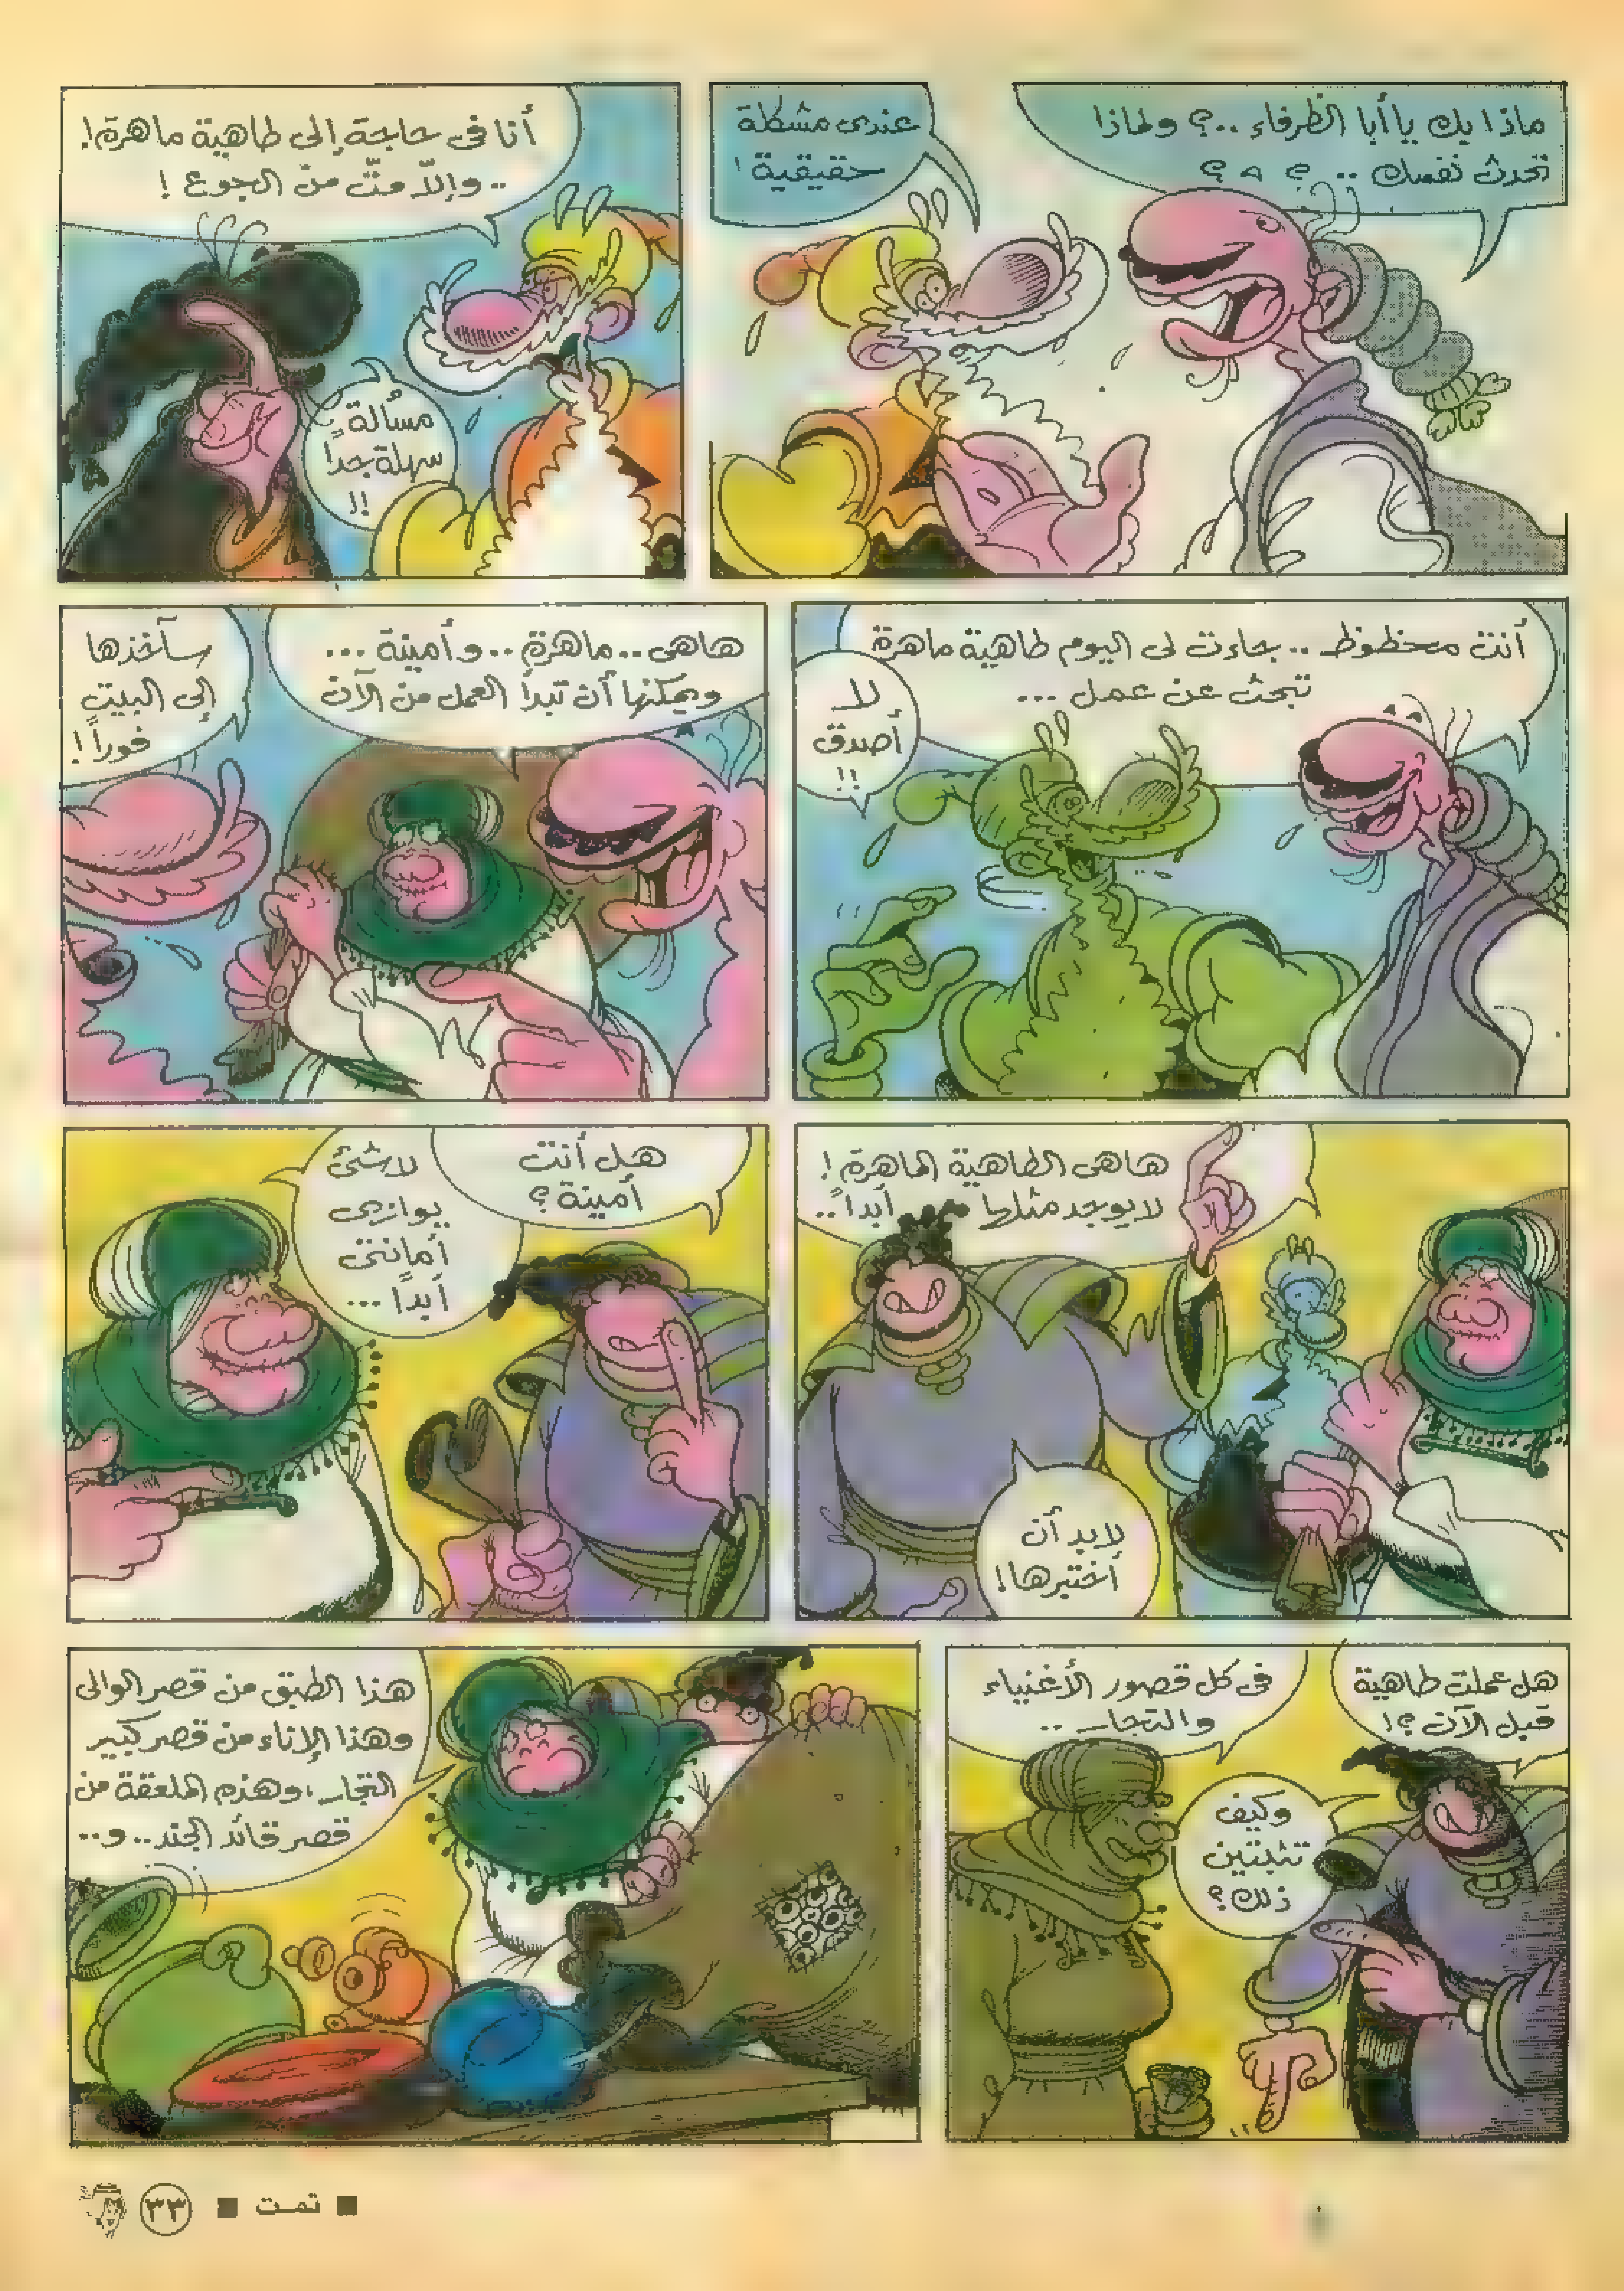 ماذا بك يا أبا الظرفاء ..؟ ولماذا
تحدث نفسك .. ؟ ^ ؟
عندى مشكلة
حقيقية !
أنا فى حاجة إلى طاهية ماهرة!
.. وإلاّ متّ من الجوع !
مسألة
سهلة جداً
!!
أنت محظوظ .. جاءت لى اليوم طاهية ماهرة
تبحث عن عمل ...
لا
أصدق
!!
هاهى .. ماهرة .. وأمينة ...
ويمكنها أن تبدأ العمل من الآن
سآخذها
إلى البيت
فوراً !
هاهى الطاهية الماهرة !
لا يوجد مثلها أبداً ..
لابد أن
أختبرها !
هل أنت
أمينة ؟
لا شئ
يوازى
أمانتى
أبداً ...
هل عملت طاهية
قبل الآن ؟!
فى كل قصور الأغنياء
والتجار ..
وكيف
تثبتين
ذلك ؟
هذا الطبق من قصر الوالى
وهذا الإناء من قصر كبير
التجار ، وهذه الملعقة من
قصر قائد الجند .. و ..
■ تمت ■ ٣٣